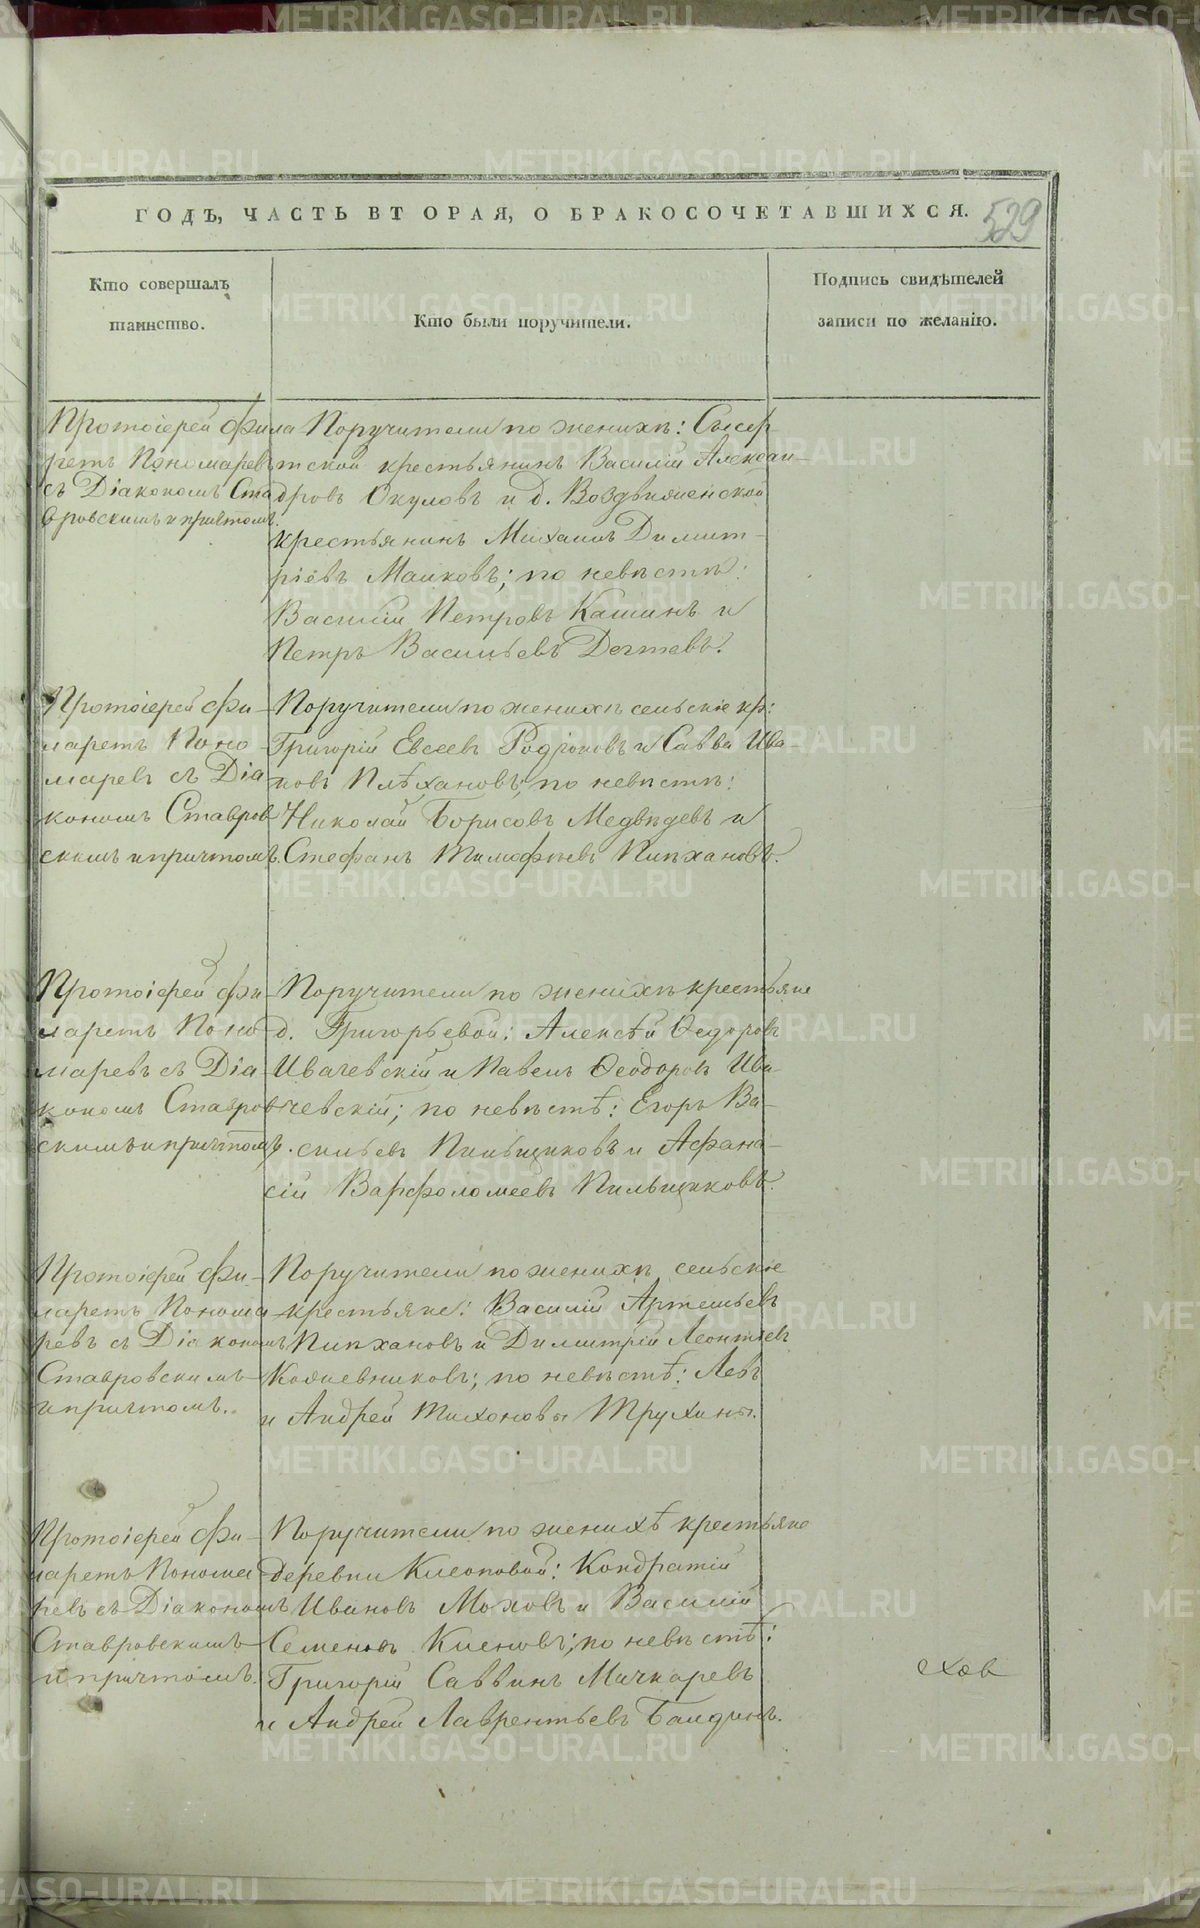 ГОДЪ, ЧАСТЬ ВТОРАЯ, О БРАКОСОЧЕТАВШИХСЯ.
529
Кто совершалъ
таинство.
Кто были поручители.
Подпись свидѣтелей
записи по желанію.
Протоіерей Фила
ретъ Пономаревъ
съ Діакономъ Ста
вровскимъ и причтомъ.
Поручители по женихѣ: Сысер-
тской крестьянинъ Василій Алексан-
дровъ Окуловъ и д. Воздвиженской
крестьянинъ Михаилъ Димит-
ріевъ Маиковъ; по невѣстѣ:
Василій Петровъ Кашинъ и
Петръ Васильевъ Дегтевъ.
Протоіерей Фи-
ларетъ Поно-
маревъ съ Діа
кономъ Ставров
скимъ и причтомъ.
Поручители по женихѣ сельскіе кр:
Григорій Евсеевъ Родіоновъ и Савва Ива-
новъ Плѣхановъ; по невѣстѣ:
Николай Борисовъ Медвѣдевъ и
Стефанъ Тимофѣевъ Плѣхановъ.
Протоіерей Фи-
ларетъ Поно-
маревъ съ Діа
кономъ Ставров
скимъ и причтомъ.
Поручители по женихѣ крестьяне
д. Григорьевой: Алексѣй Ѳедоровъ
Ивачевскій и Павелъ Ѳеодоровъ Ива-
чевскій; по невѣстѣ: Егоръ Ва-
сильевъ Пильщиковъ и Афана-
сій Варфоломеевъ Пильщиковъ.
Протоіерей Фи-
ларетъ Понома
ревъ съ Діакономъ
Ставровскимъ
и причтомъ.
Поручители по женихѣ сельскіе
крестьяне: Василій Артемьевъ
Плѣхановъ и Димитрій Леонтіевъ
Кожевниковъ; по невѣстѣ: Левъ
и Андрей Тихоновы Трухины.
Протоіерей Фи-
ларетъ Понома
ревъ съ Діакономъ
Ставровскимъ
и причтомъ.
Поручители по женихѣ крестьяне
деревни Кленовой: Кондратій
Ивановъ Моховъ и Василій
Семеновъ Кленовъ; по невѣстѣ:
Григорій Саввинъ Мичкаревъ
и Андрей Лаврентьевъ Балдинъ.
METRIKI.GASO-URAL.RU